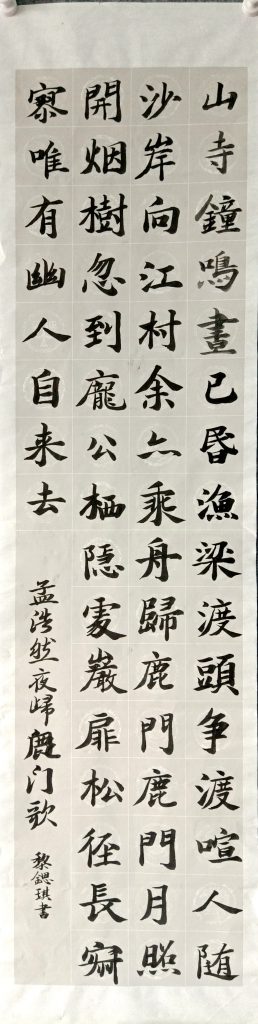 山寺鐘鳴晝已昏漁梁渡頭争渡喧人随
沙岸向江村余亦乘舟歸鹿門鹿門月照
開烟樹忽到龐公栖隱處巖扉松徑長寂
寥唯有幽人自来去
孟浩然夜歸鹿门歌
黎鍶琪書